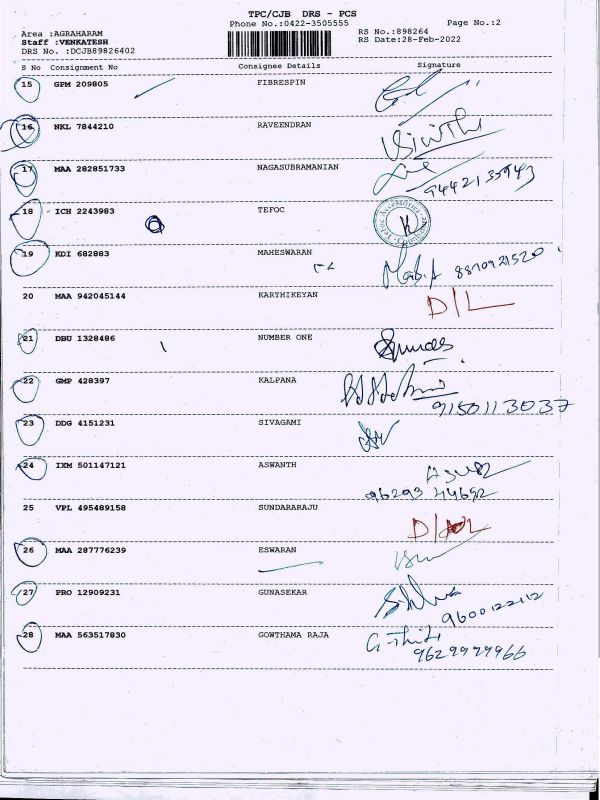 TPC/CJB DRS - PCS
Phone No.:0422-3505555 Page No.:2
Area :AGRAHARAM RS No.:898264
Staff :VENKATESH RS Date:28-Feb-2022
DRS No. :DCJB89826402
S No Consignment No Consignee Details Signature
15 GPM 209805 FIBRESPIN
16 NKL 7844210 RAVEENDRAN
17 MAA 282851733 NAGASUBRAMANIAN
9442135943
18 ICH 2243983 TEFOC
19 KDI 682883 MAHESWARAN 8870921520
20 MAA 942045144 KARTHIKEYAN D/L
21 DBU 1328486 NUMBER ONE
22 GMP 428397 KALPANA
9150113037
23 DDG 4151231 SIVAGAMI
24 IXM 501147121 ASWANTH
96293 44692
25 VPL 495489158 SUNDARARAJU
26 MAA 287776239 ESWARAN
27 PRO 12909231 GUNASEKAR
9600122112
28 MAA 563517830 GOWTHAMA RAJA
9629979966